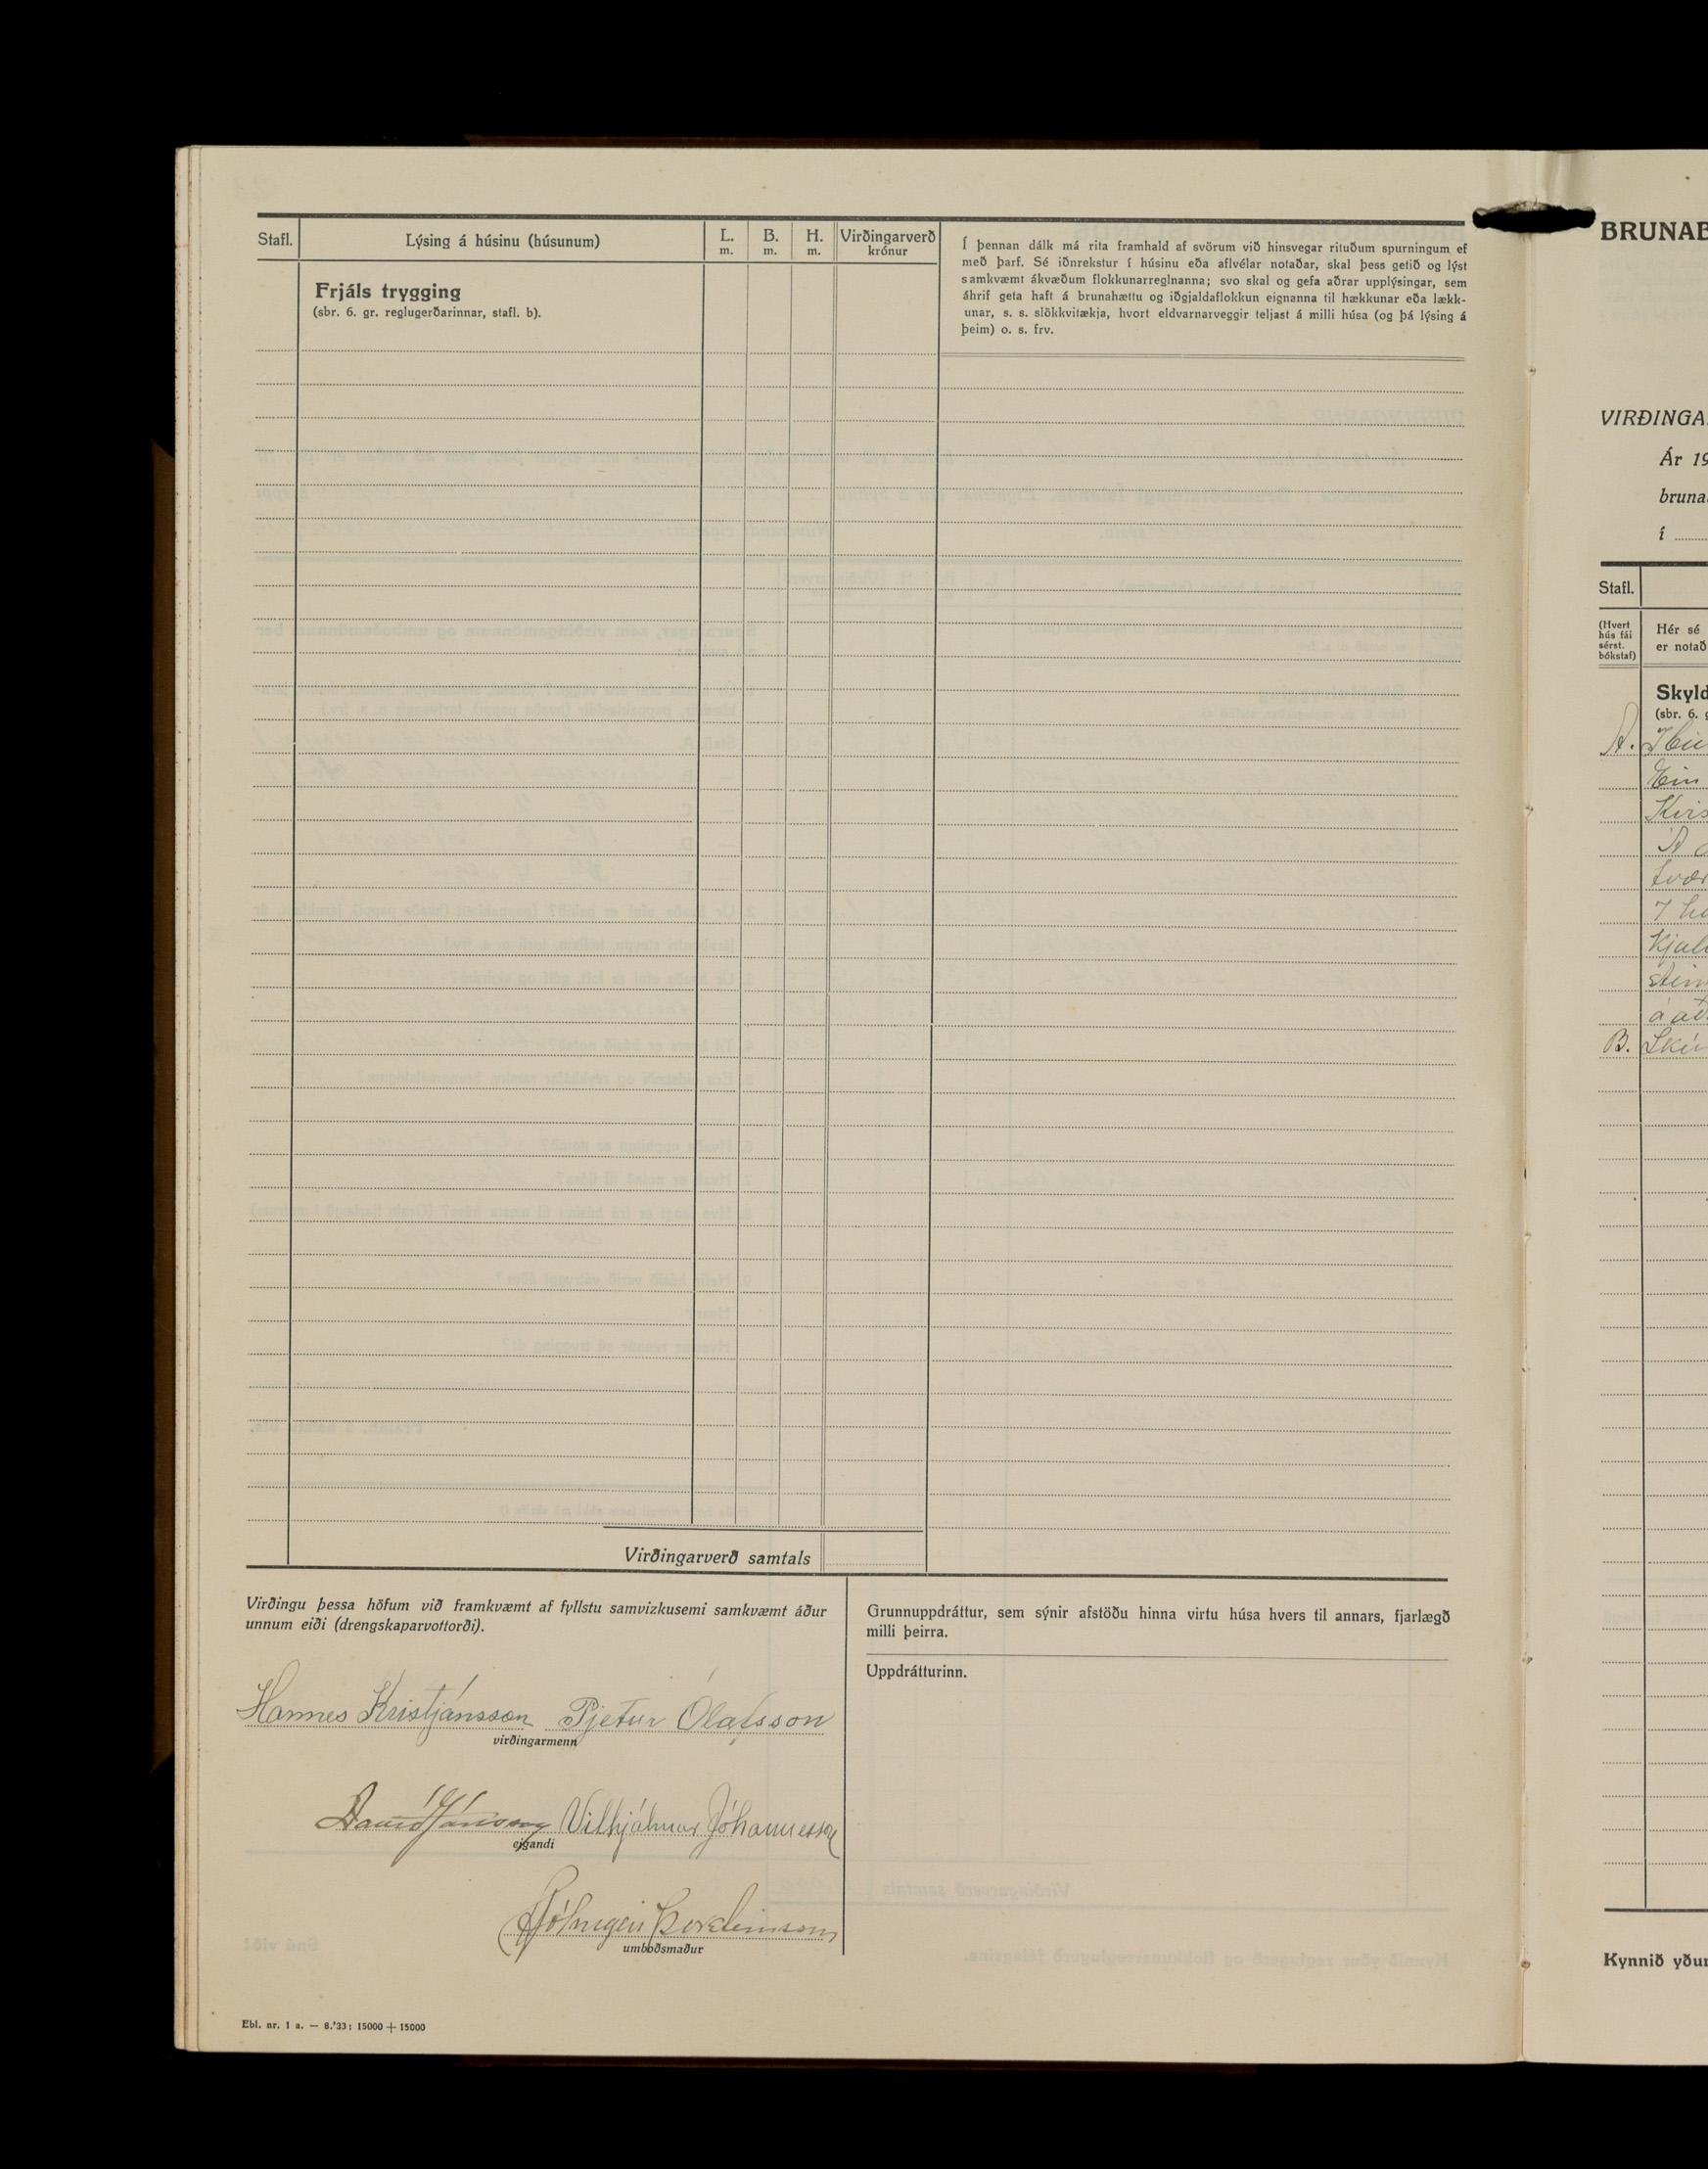 Stafl.
Lýsing á húsinu (húsunum)
L.
m.
B.
m.
H.
m.
Virðingarverð
krónur
Í þennan dálk má rita framhald af svörum við hinsvegar rituðum spurningum ef
með þarf. Sé iðnrekstur í húsinu eða aflvélar notaðar, skal þess getið og lýst
samkvæmt ákvæðum flokkunarreglnanna; svo skal og gefa aðrar upplýsingar, sem
áhrif geta haft á brunahættu og iðgjaldaflokkun eignanna til hækkunar eða lækk-
unar, s. s. slökkvitækja, hvort eldvarnarveggir teljast á milli húsa (og þá lýsing á
þeim) o. s. frv.
Frjáls trygging
(sbr. 6. gr. reglugerðarinnar, stafl. b).
Virðingarverð samtals
Virðingu þessa höfum við framkvæmt af fyllstu samvizkusemi samkvæmt áður
unnum eiði (drengskaparvottorði).
Hannes Kristjánsson Pjetur Ólafsson
virðingarmenn
Davíð Jónsson Vilhjálmur Jóhannesson
eigandi
Hólmgeir Þorsteinsson
umboðsmaður
Grunnuppdráttur, sem sýnir afstöðu hinna virtu húsa hvers til annars, fjarlægð
milli þeirra.
Uppdrátturinn.
Ebl. nr. 1 a. — 8.'33: 15000 + 15000
BRUNAB
VIRÐINGA
Ár 19
bruna
í
Stafl.
(Hvert
hús fái
sérst.
bókstaf)
Hér sé
er notað
Skyld
(sbr. 6. g
A.
Ein
Kvis
Á
tvær
7 h
Kjal
stein
á að
B. Skú
Kynnið yður